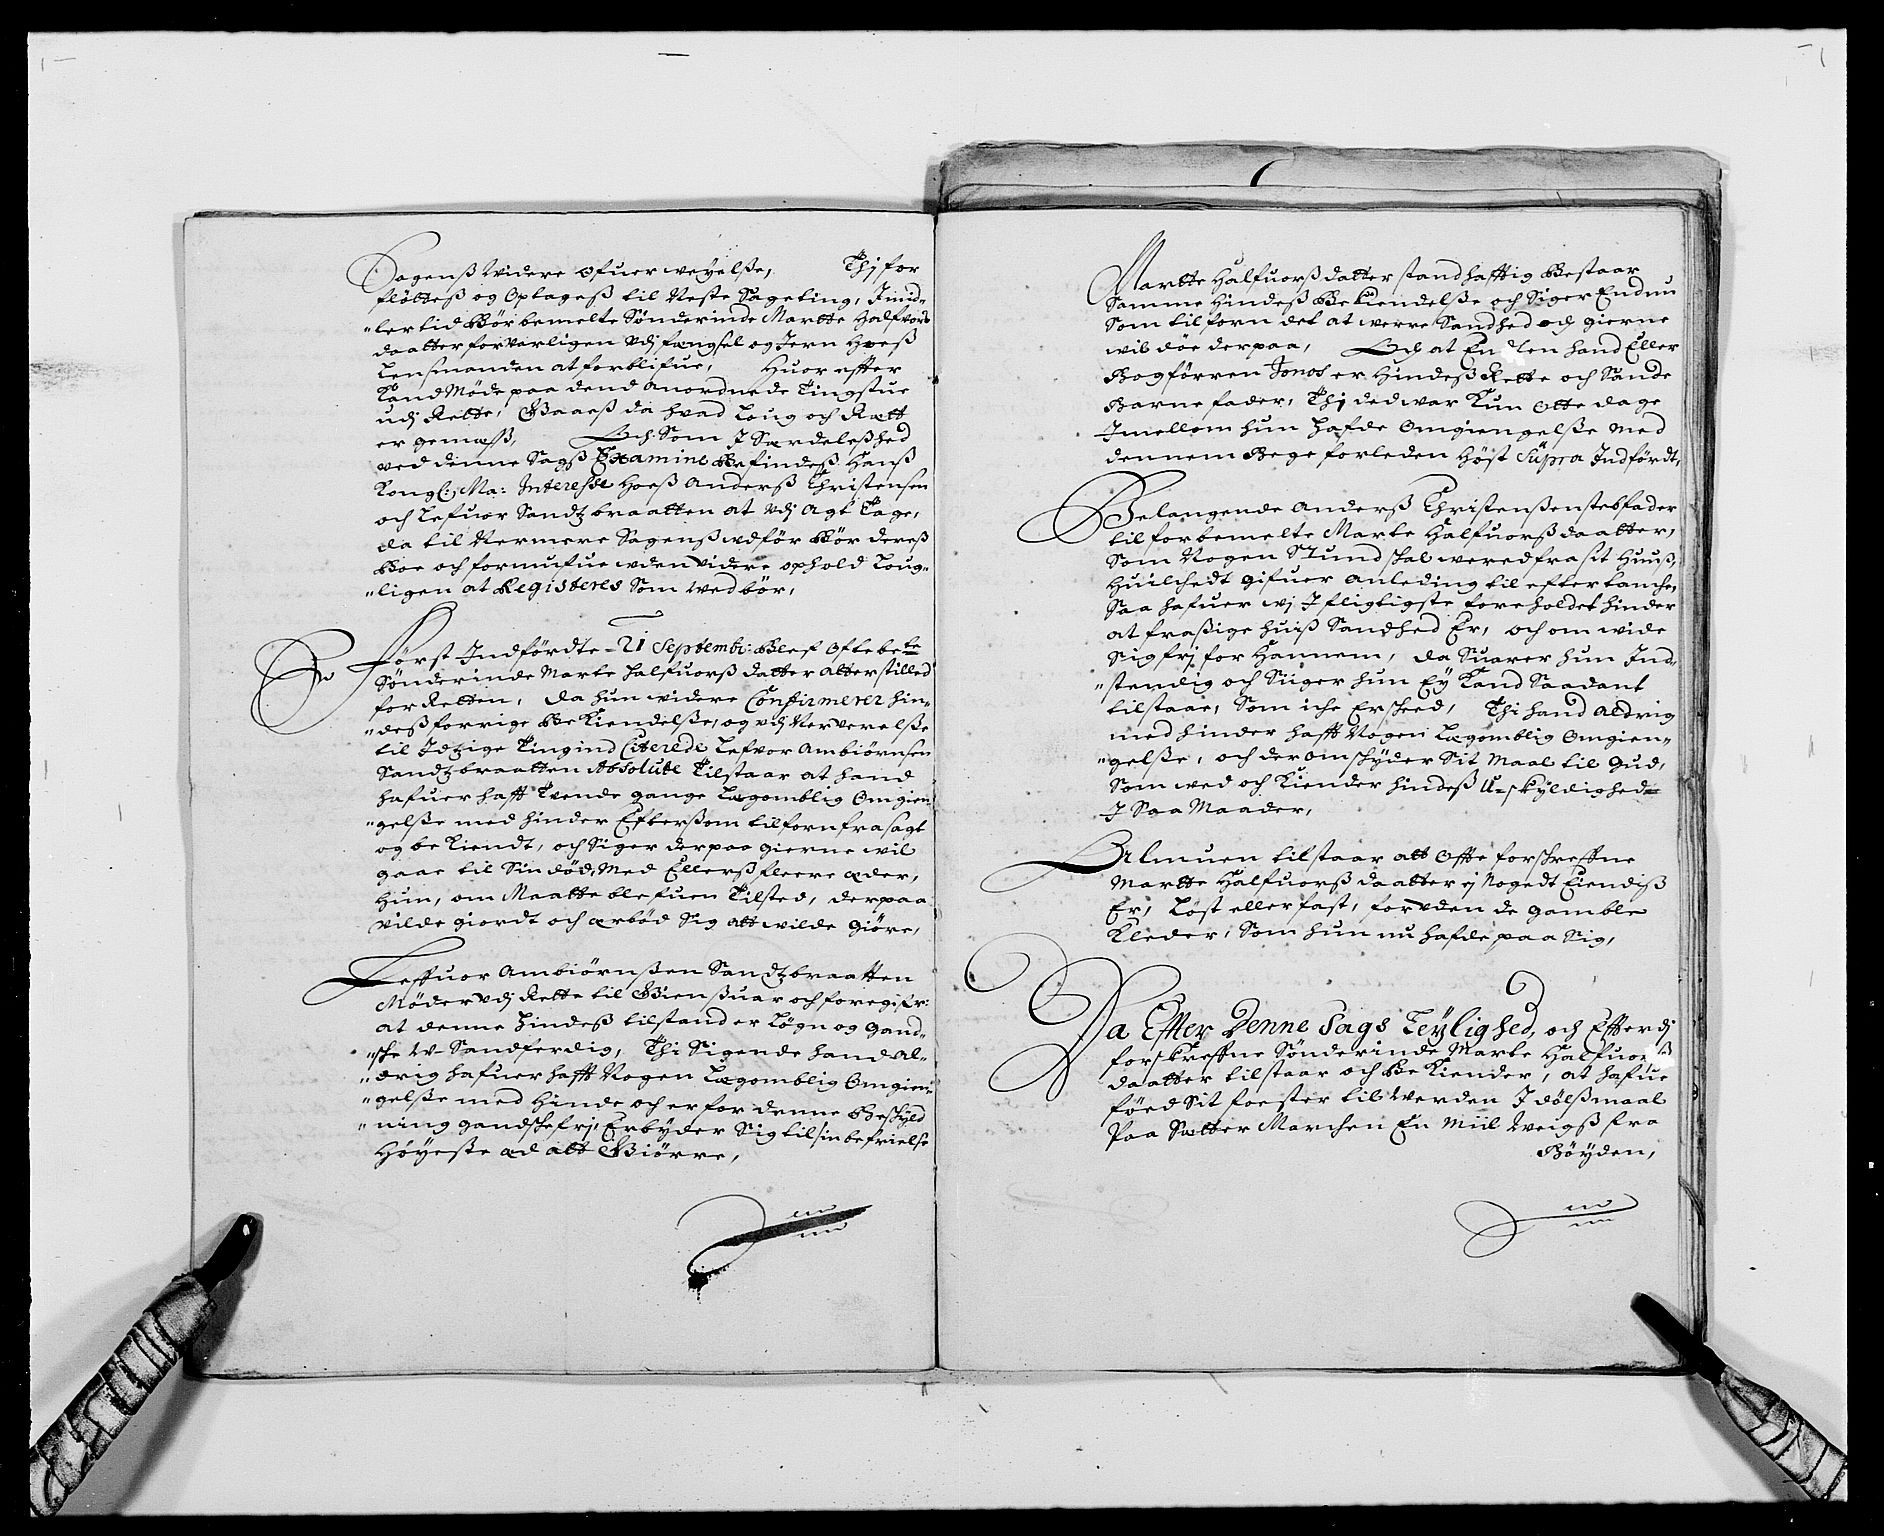 Sagenß widere ofuer weyelße, Thj for
fløtteß og Optageß til Neste Sageting, Imid-
"lertid Bør bemelte Sønderinde Martte Halfvors
daatter forvarligen vdj fængsel og Jern Hoeß
Lensmanden at forblifue, Huor effter
Kand Møde paa dend anordnede Tingstue
udj Rette, Gaaeß da hvad Loug och Rætt
er gemæß, Och Som J Særdeleßhed
ved denne Sagß Examine Befindeß Hanß
Kongl: Ma: Interesse Hoeß Anderß Christensen
och Lefuor Sandtzbraatten at vdj Agt Tage,
da til Nermere Sagenß vdfør Bør dereß
Boe och formufue uden videre ophold Loug-
"ligen at Registeres Som wed bør,
Først Indførdte 21 Septembr: Blef Ofte bete
Sønderinde Marte Halfuorß datter atter stilled
for Retten, da hun widere Confirmerer hin-
"deß forrige Bekiendelße, og vdj Nerverelße
til Idtzige Tingind Citerede Lefvor Ambiørnsen
Sandtzbraatten Absolute Tilstaar at hand
hafuer hafft Tvende gange Lægomblig Omgien-
"gelße med hinder Efterßom tilforn fra sagt
og bekiendt, och Siger derpaa gierne wil
gaae til Sin død, Med Ellerß fleere æder,
hun, om Maatte blefuen Tilsted, derpaa
vilde giordt och ærbød Sig att wilde Giøre,
Leffuor Ambiørnßen Sandtzbraatten
Møder vdj Rette til Gienßuar och foregifr:
at denne hindeß tilstand er Løgn og Gand-
"ske W-Sandferdig, Thi Sigende hand Al-
"drig hafuer hafft Nogen Lægomblig Omgien-
"gelße med Hinde och er for denne Beskyld
"ning gandske frj, Erbyder Sig til sin befrielse
Høyeste æd att Giørre,
Martte Halfuorß datter standhafftig Bestaar
Samme Hindeß Bekiendelße och Siger Endnu
Som tilforn det at werre Sandhed och gierne
wil døe derpaa, Och at En den hand Eller
Bogførren Jonas er Hindeß Rette och Sande
Barnefader, Thj ded war Kun Otte dage
Imellom hun hafde Omgiengelße med
dennem Bege forleden Høst Supra Indførdt,
Belangende Anderß Christenßen stebfader
til forbemelte Marte Halfuorß daatter,
Som Nogen Stund skal wered fra sit Huuß,
Huilchedt gifuer anleding til eftertanche,
Saa hafuer wj J fligtigste foreholdet hinder
at fraßige huiß Sandhed Er, och om wide
Sig frj for Hannem, da Suarer hun Ind-
"stendig och Siiger hun Ey Kand Saadant
tilstaae, Som iche Er skeed, Thi hand Aldrig
med hinder hafft Nogen Lægomblig Omgien-
"gelße, och derom skyder Sit Maal til Gud,
Som wed och Kiender hindeß U-skyldighed
J Saa Maader,
Almuen tilstaar att Offte forskreffne
Martte Halfuorß daatter ej Nogedt Eiendiß
Er, Løst eller fast, foruden de gamble
Kleder, Som hun nu hafde paa Sig,
Da Effter Denne Sags Leylighed, och Efterdj
forskreffne Sønderinde Marte Halfuorß
daatter tilstaar och Bekiender, at hafue
føed Sit foester til Werden J dølßmaal
Paa Sætter Marchen En Miil Weigß fra
Bøyden,